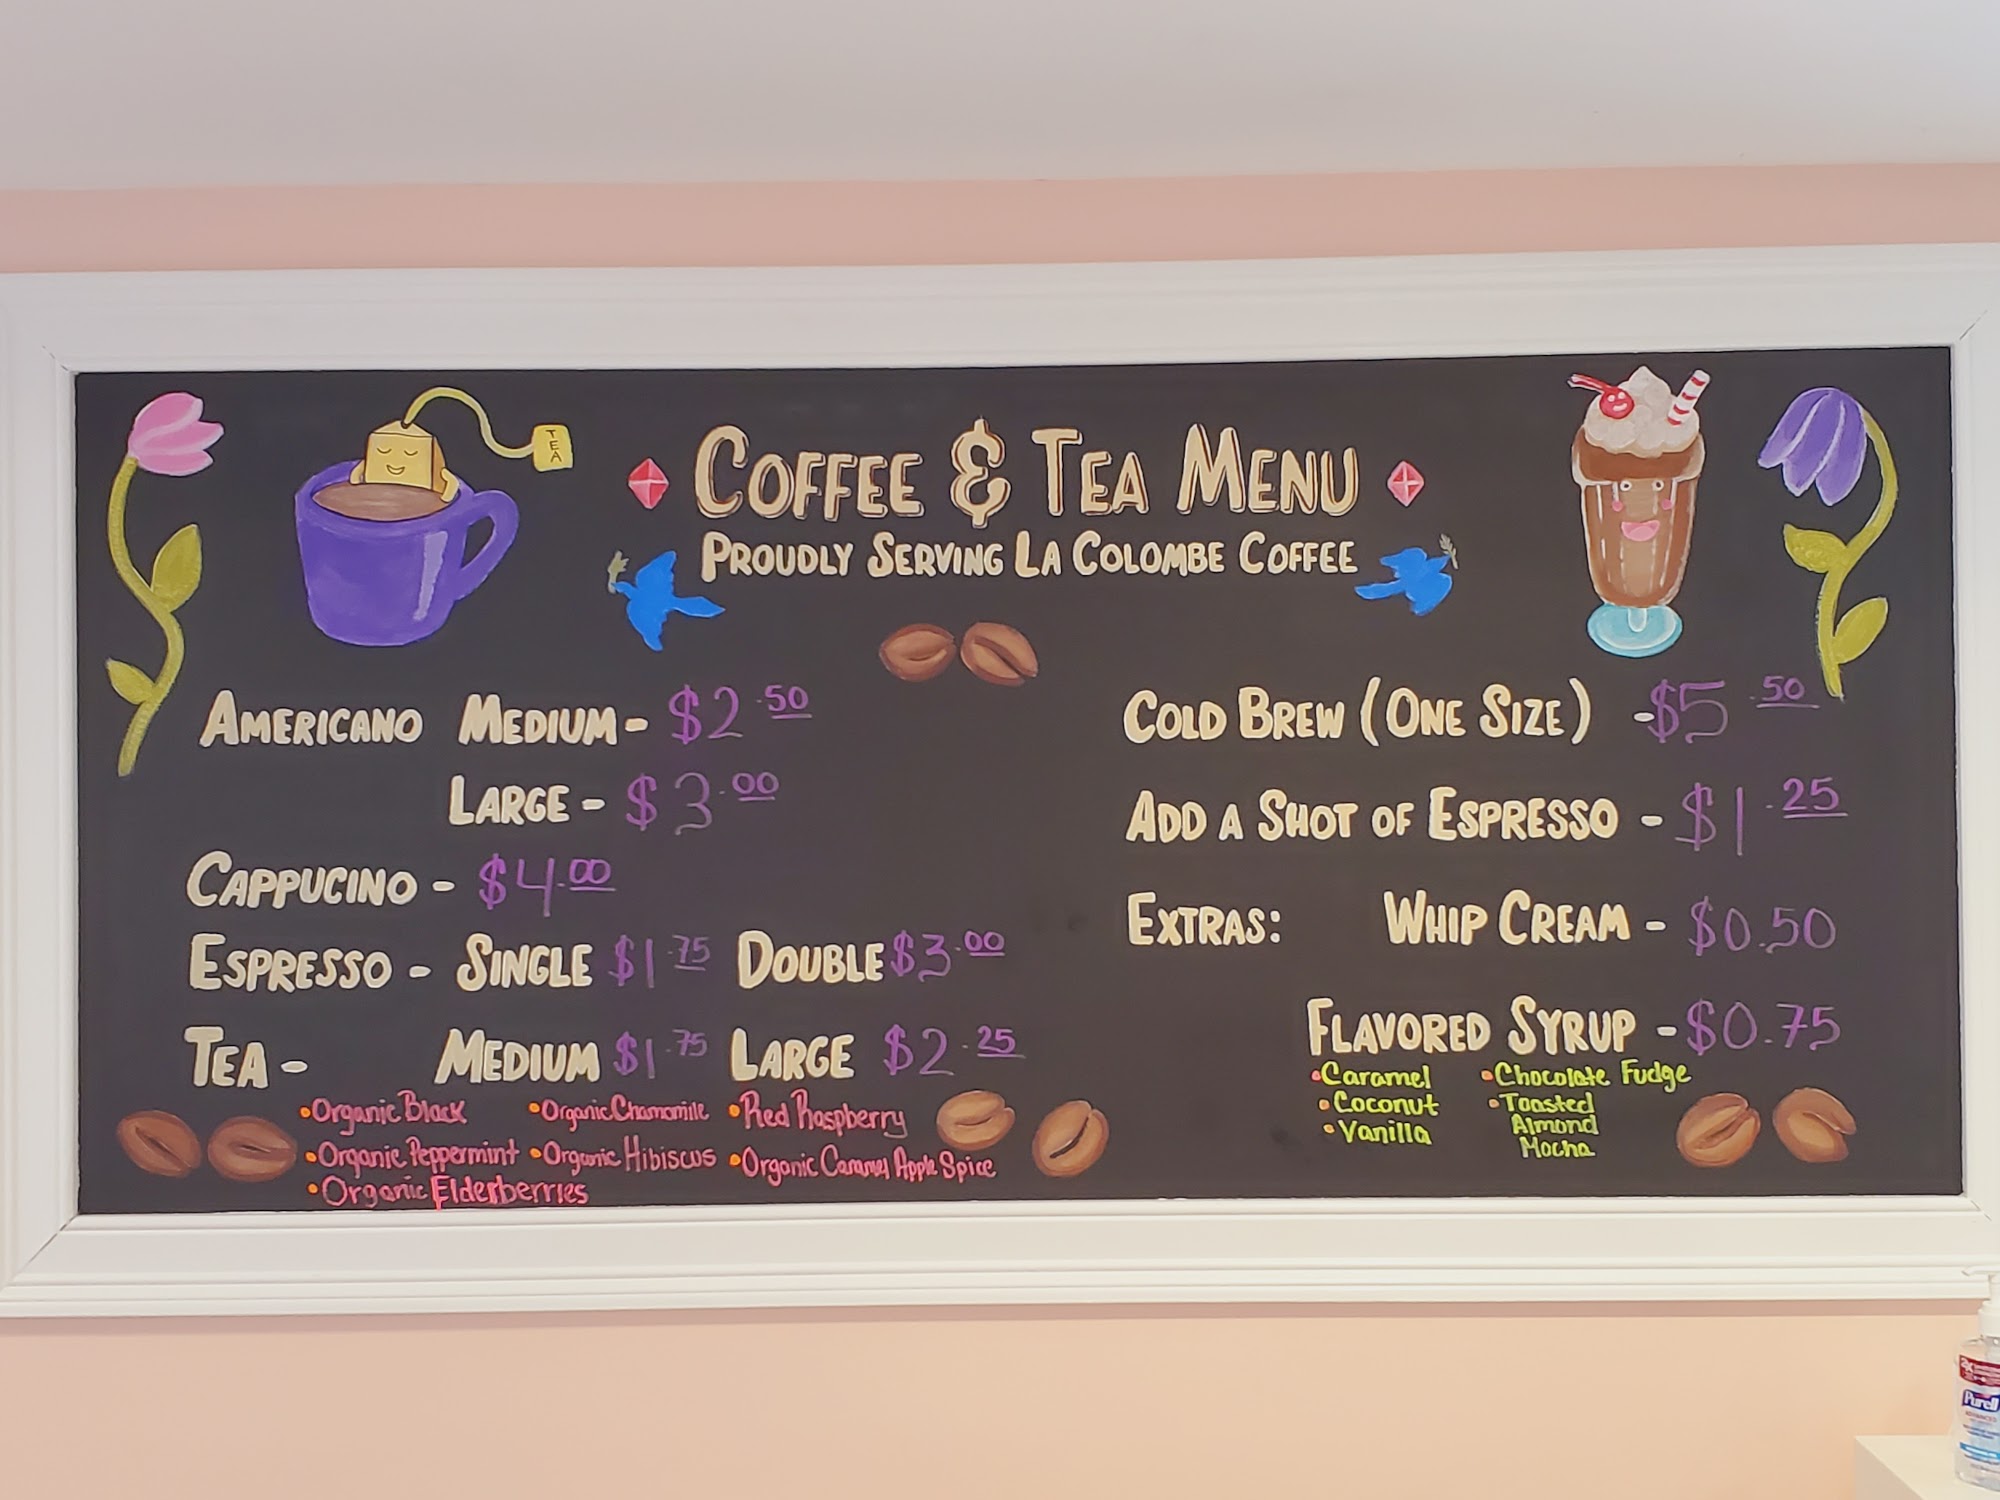 TEA
COFFEE & TEA MENU
PROUDLY SERVING LA COLOMBE COFFEE
AMERICANO MEDIUM - $2.50
LARGE - $3.00
CAPPUCINO - $4.00
ESPRESSO - SINGLE $1.75 DOUBLE $3.00
TEA - MEDIUM $1.75 LARGE $2.25
•Organic Black •Organic Chamomile •Red Raspberry
•Organic Peppermint •Organic Hibiscus •Organic Caramel Apple Spice
•Organic Elderberries
COLD BREW (ONE SIZE) - $5.50
ADD A SHOT OF ESPRESSO - $1.25
EXTRAS: WHIP CREAM - $0.50
FLAVORED SYRUP - $0.75
•Caramel •Chocolate Fudge
•Coconut •Toasted
•Vanilla Almond
Mocha
2X
Purell
ADVANCED